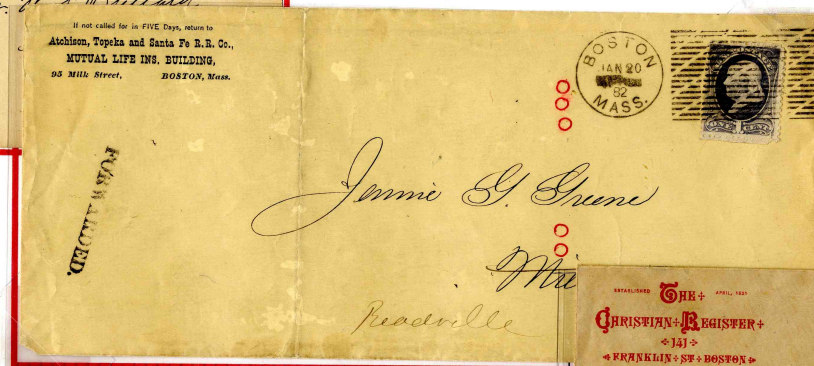 If not called for in FIVE Days, return to
Atchison, Topeka and Santa Fe R.R. Co.,
MUTUAL LIFE INS. BUILDING,
95 Milk Street, BOSTON, Mass.
BOSTON
JAN 20
82
MASS.
FORWARDED.
Jennie G. Greene
Readville
ESTABLISHED APRIL, 1821
THE
CHRISTIAN REGISTER
141
FRANKLIN ST BOSTON